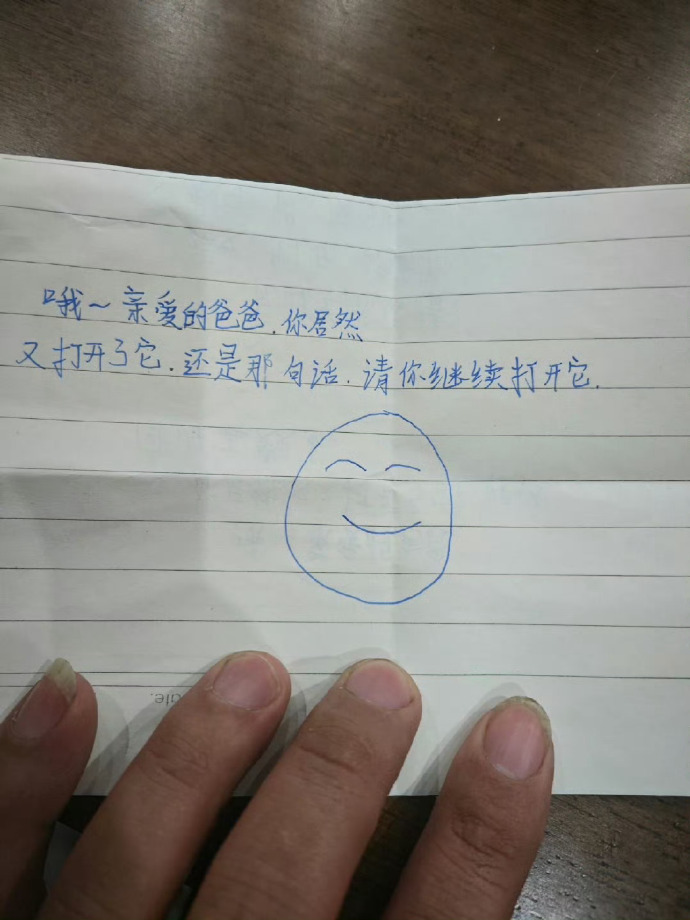 哦~亲爱的爸爸.你居然
又打开了它.还是那句话.请你继续打开它.